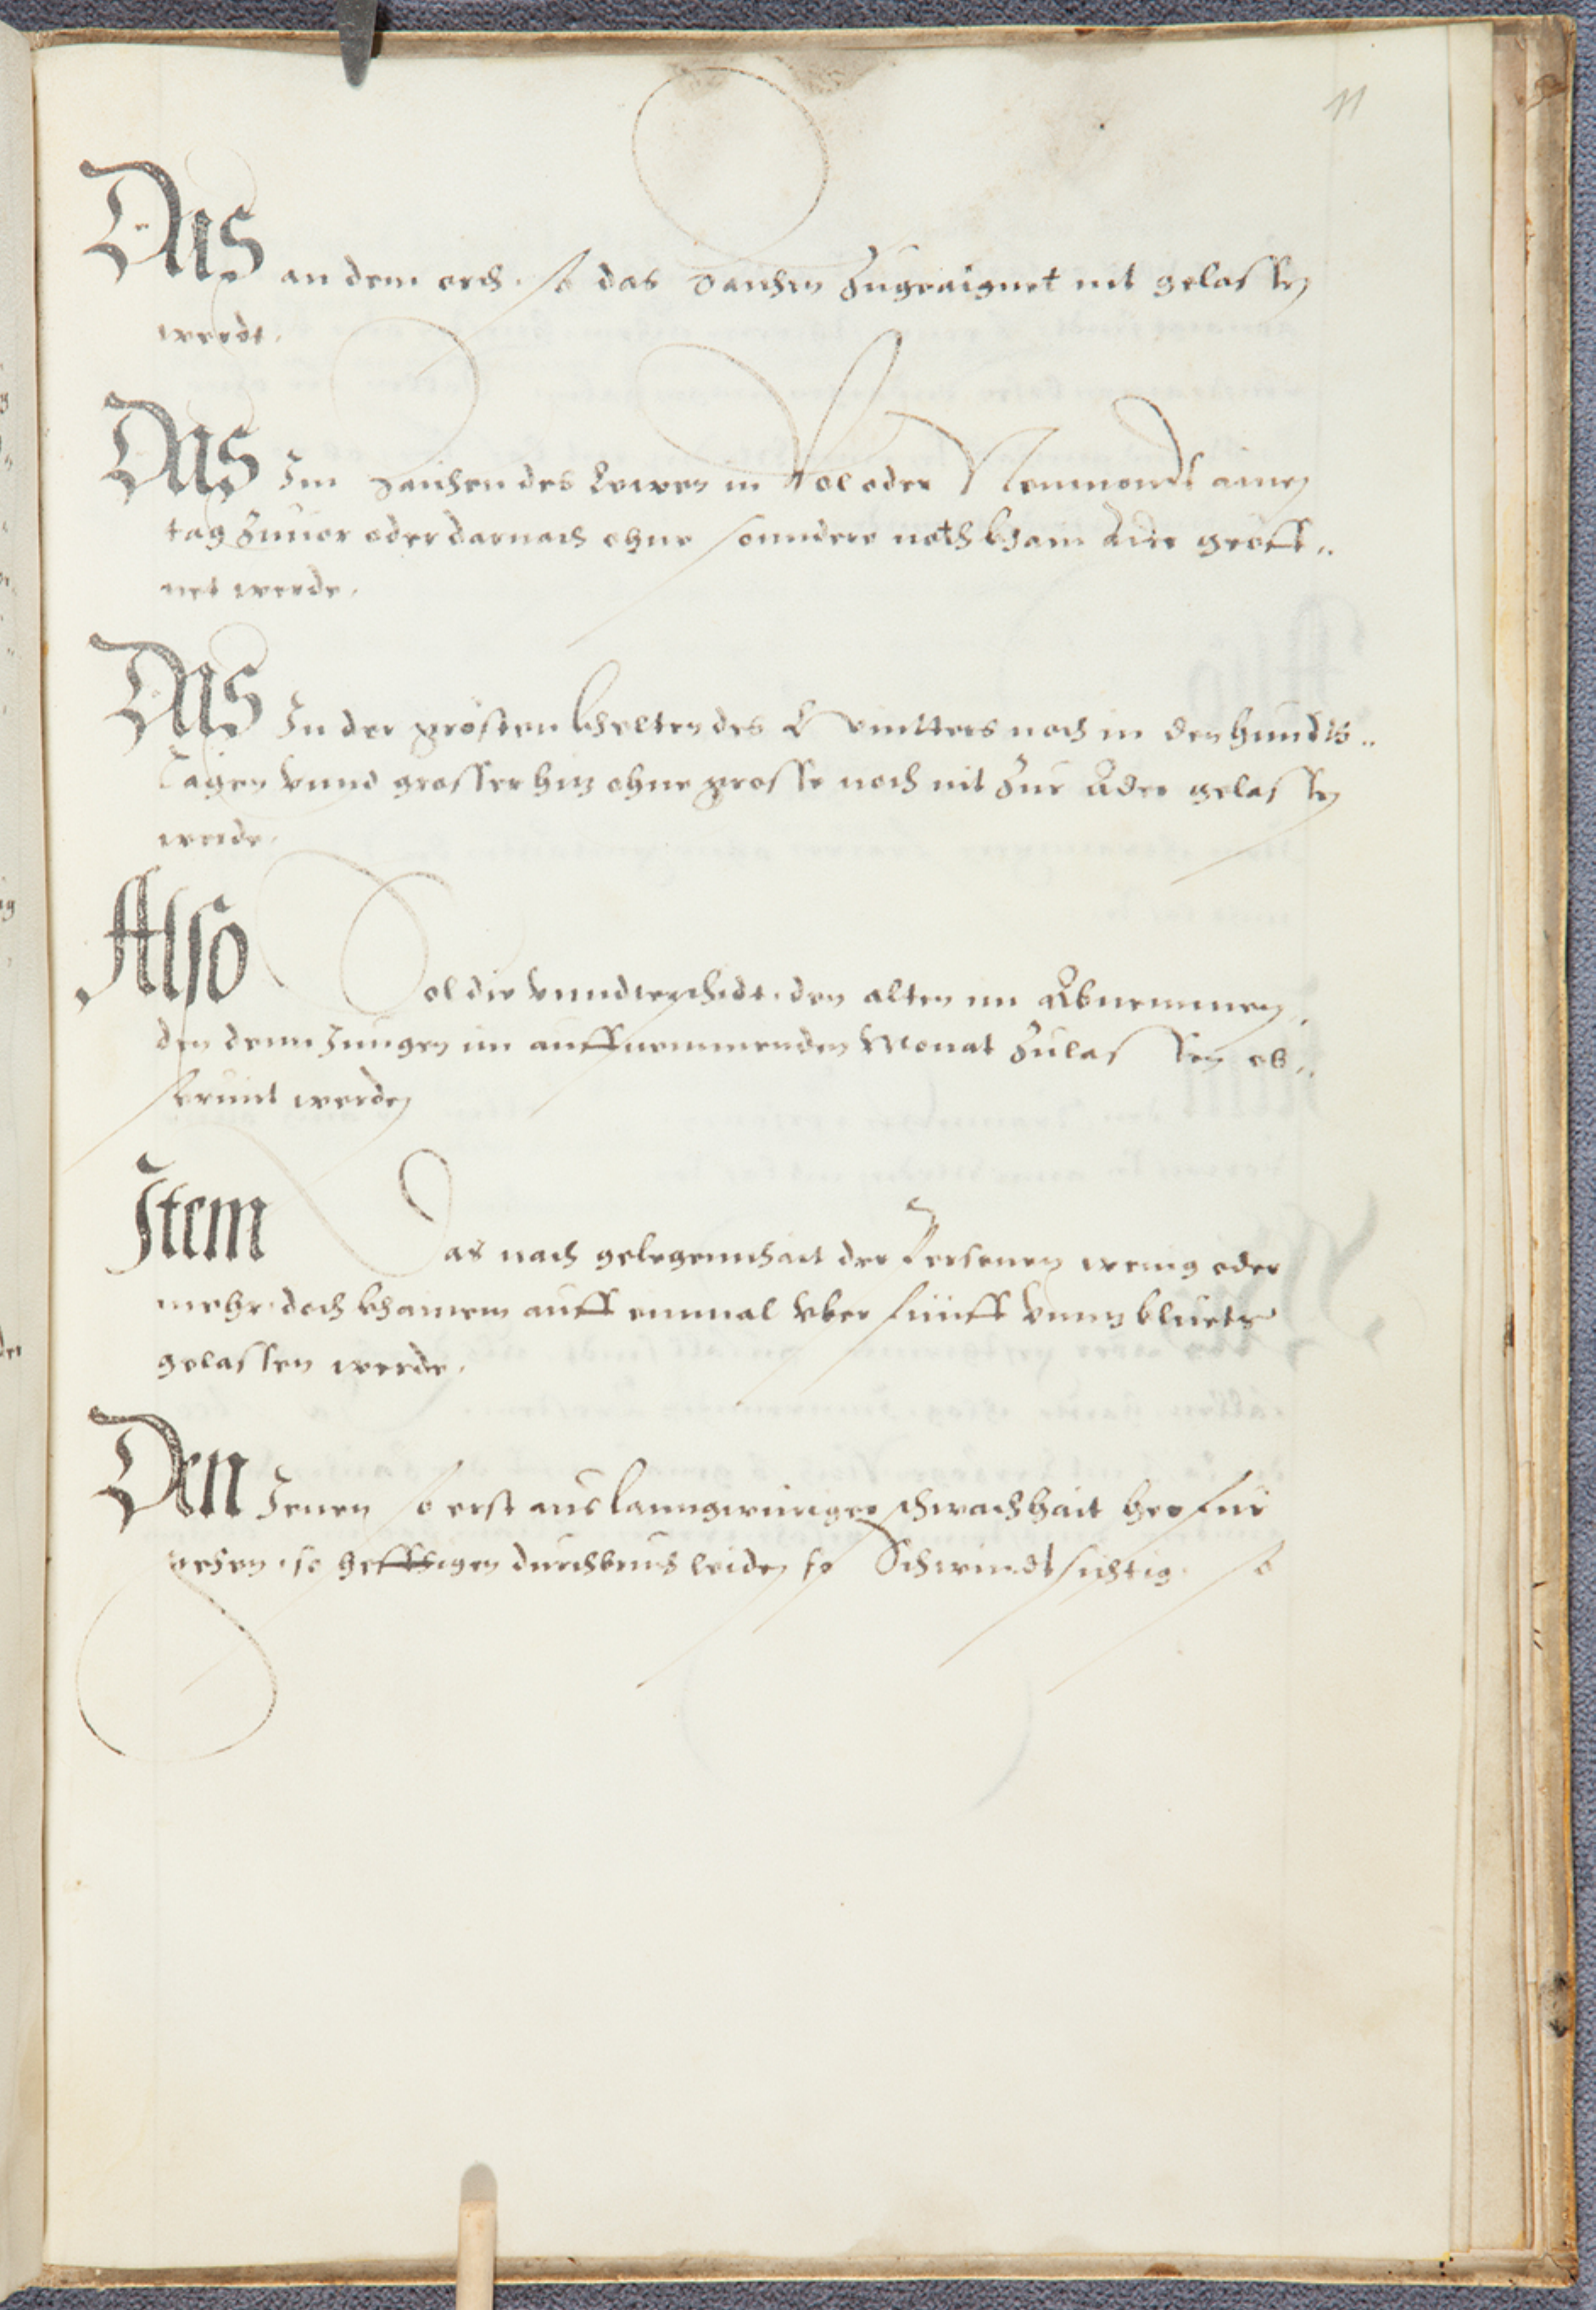 11
Das an dem orth. so das Zaichen Zugeaignet nit gelassen
werdt.
Das Im Zaichen des Lewen in Vol oder Neumondt ainen
tag Zuuor oder darnach ohne sonndere noth kham Ader geöff„
net werde.
Das In der grösten khelten des Winters noch in den hundts„
Tagen vnnd grosser hitz ohne grosse noth nit Zur Ader gelassen
werde.
Also Sol die vnnderschidt. den alten im Abnemmen„
den denn Jungen im auffnemmenden Monat Zulassen ob„
seruirt werden
Item Das nach gelegennhait der Personen wenig oder
mehr. doch khainem auff einmal vber fünff vnnz bluets
gelassen werde.
Den Jenen so erst aus lanngwüriger schwachhait herfür
gehen. so hefftigen durchbruch leiden so Schwindtsichtig. so